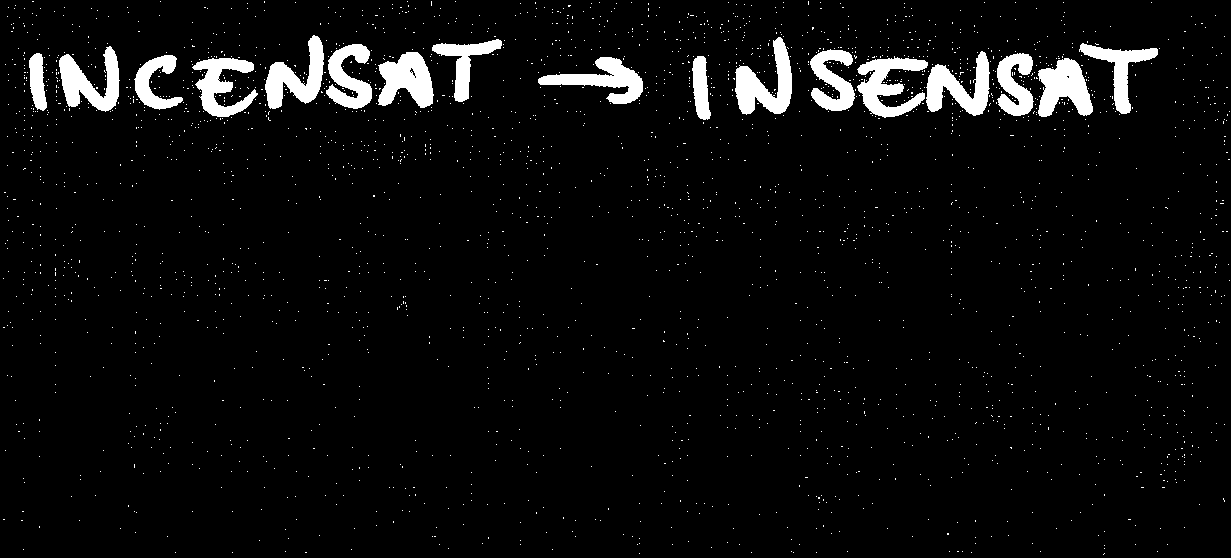 INCENSAT → INSENSAT